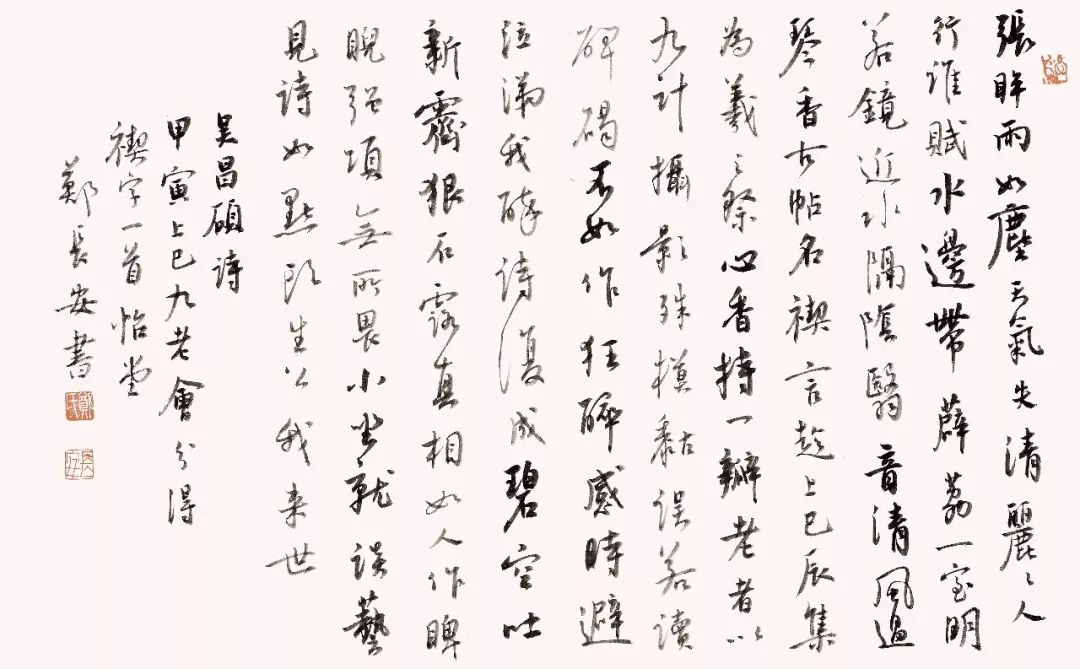 張眸雨如塵天氣失清麗〻人
行誰賦水邊帶薜荔一室明
若鏡近水隔陰翳音清風過
琴香古帖名禊言趁上巳辰集
為羲之祭心香持一瓣老者以
九計攝影殊模黏误若讀
碑碣不如作狂醉感時避
泣涕我醉诗復成碧空吐
新霽狠石露真相如人作睥
睨强項無所畏小坐就談藝
見詩如點頭生公我來世
吴昌碩诗
甲寅上巳九老會分得
禊字一首怡堂
鄭長安書